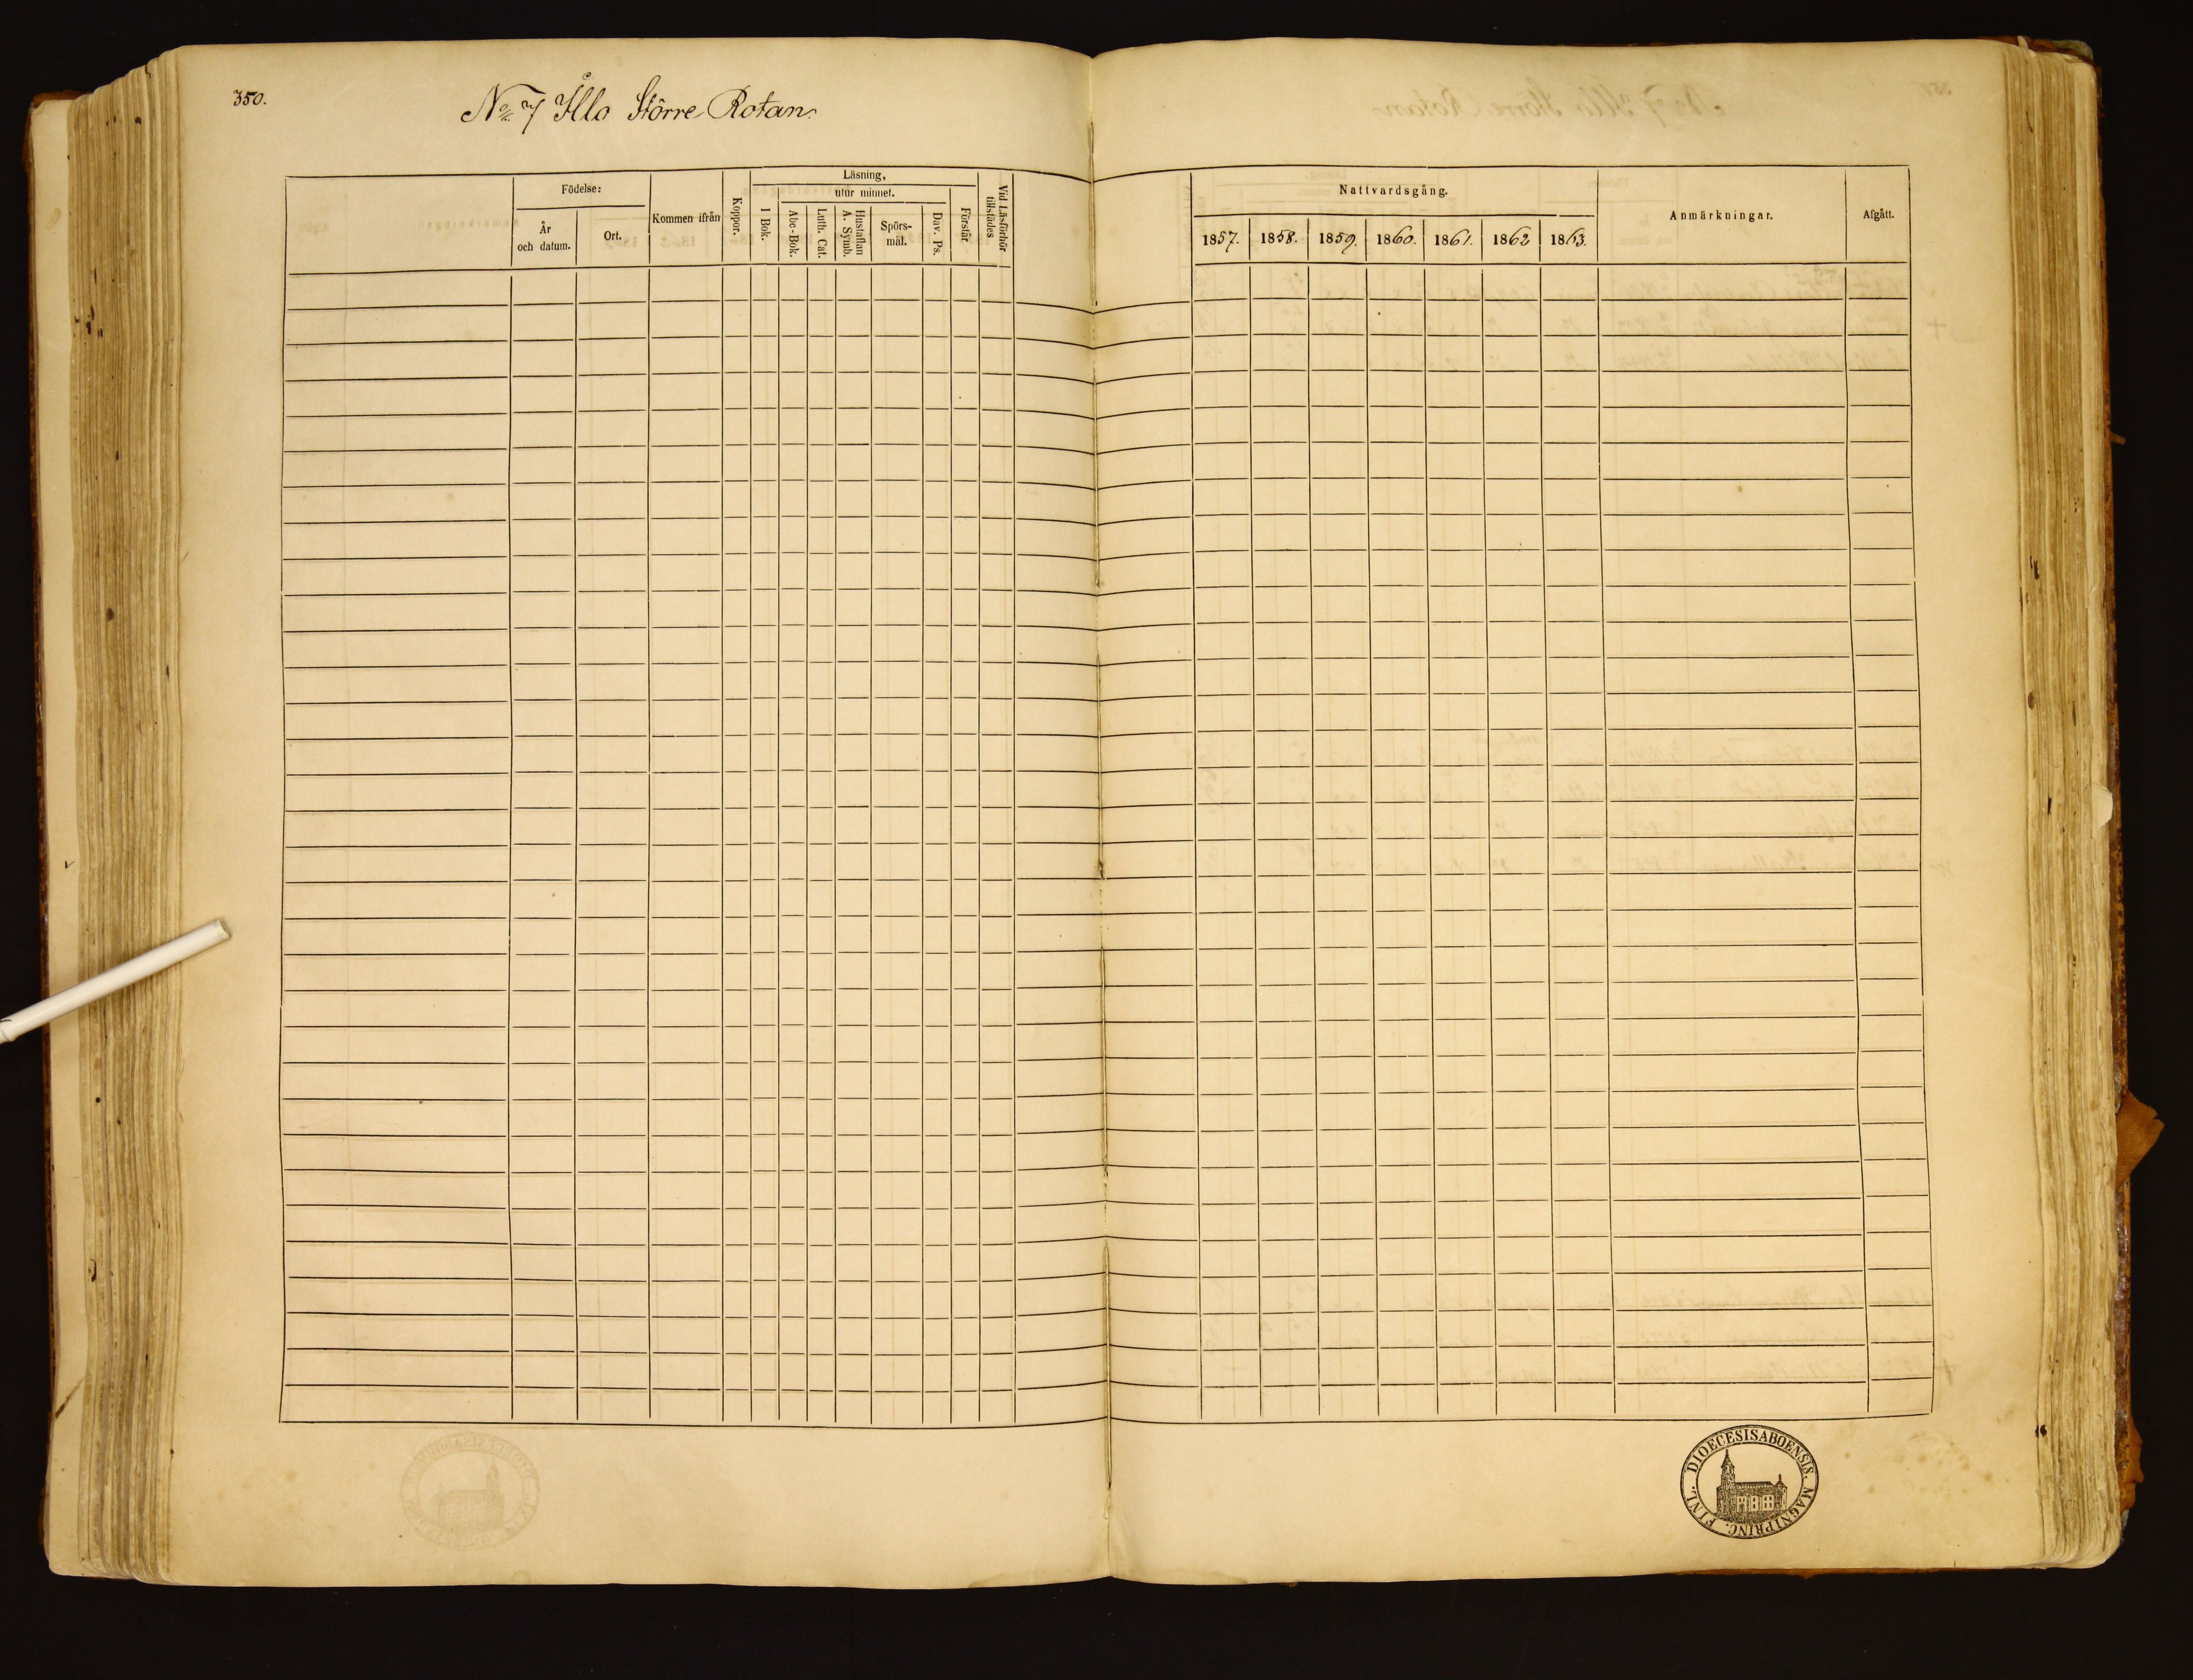 350.
No 7 Yllo Större Rotan
Födelse:
År
och datum.
Ort.
Kommen ifrån
Koppor.
Läsning,
I Bok.
utur minnet.
Abc-Bok.
Luth. Cat.
Hustaflan
A. Symb.
Spörs-
mål.
Dav. Ps.
Förstår.
Vid Läsförhör
tillstädes
Nattvardsgång.
1857.
1858.
1859.
1860.
1861.
1862
1863.
Anmärkningar.
Afgått.
DIOECESIS ABOENSIS. MAGNI PRINC. FINL.